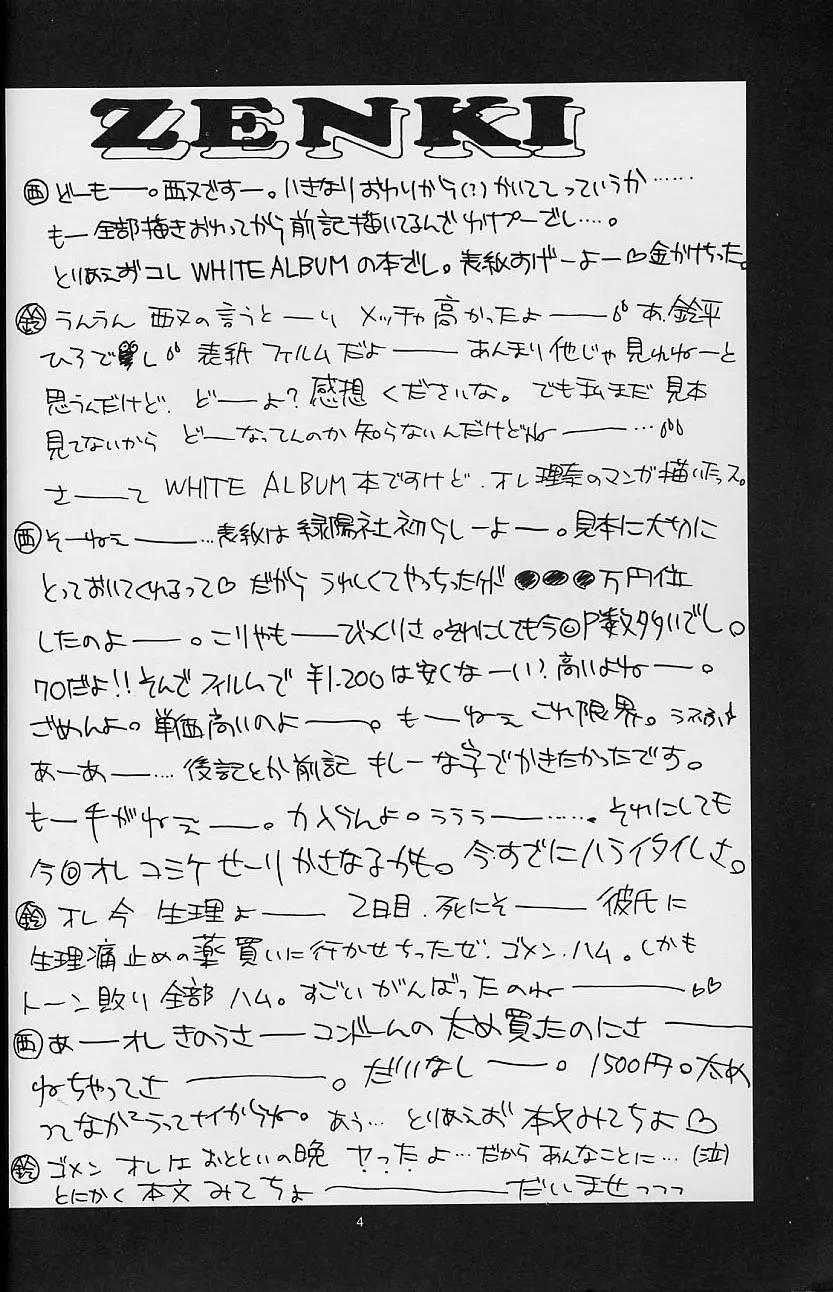 ZENKI
西 どーもー。西又ですー。いきなりおわりから(?)かいててっていうか……
もー全部描きおわってから前記描いてるんでわけプーでし…。
とりあえずコレ WHITE ALBUMの本でし。表紙すげーよー♡金かけちった。
鈴 うんうん 西又の言うとーり メッチャ高かったよー あ、鈴平
ひろでし 表紙フィルムだよー あんまり他じゃ見れねーと
思うんだけど、どーよ?感想くださいな。でも私まだ見本
見てないから どーなってんのか知らないんだけどねー…
さーて WHITE ALBUM本ですけど、オレ理奈のマンガ描いたっス。
西 そーねぇー…表紙は緑陽社初らしーよー。見本に大切に
とっておいてくれるって♡ だからうれしくてやっちったけど●●●万円位
したのよー。こりゃもーびっくりさ。それにしても今回P数多いでし。
70だよ!!そんでフィルムで ¥1.200は安くなーい?高いよねー。
ごめんよ。単価高いのよー。もーねぇ これ限界。
あーあー…後記とか前記 もしー な字でかきたかったです。
もー手がねぇー。力入らんよ。ううぅー……。それにしても
今回オレコミケせーりかさなるかも。今すでにハライタイしさ。
鈴 オレ今 生理よー 2日目、死にそー 彼氏に
生理痛止めの薬買いに行かせちったぜ、ゴメン、ハム。しかも
トーン貼り全部ハム。すごいがんばったのねー♡♡
西 あーオレきのうさーコンドームの太め買ったのにさー
ねちゃってさー。だいなしー。1500円。太め
ってなかなかうってナイからね。あぅ…とりあえず本文みてちょ♡
鈴 ゴメン オレはおとといの晩 ヤったよ…だからあんなことに…(泣)
とにかく本文みてちょー だいませっっっ
4